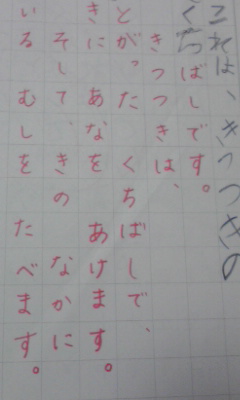 これは、きつつきの
くちばしです。
きつつきは、
とがったくちばしで、
きにあなをあけます。
そして、きのなかに
いるむしをたべます。